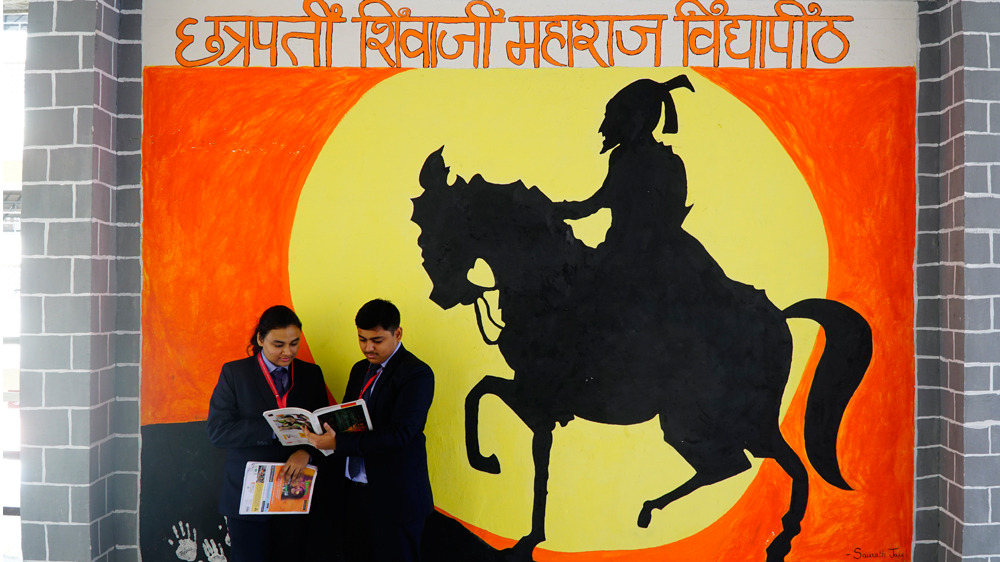 छत्रपती शिवाजी महाराज विद्यापीठ
- Saurabh Jay